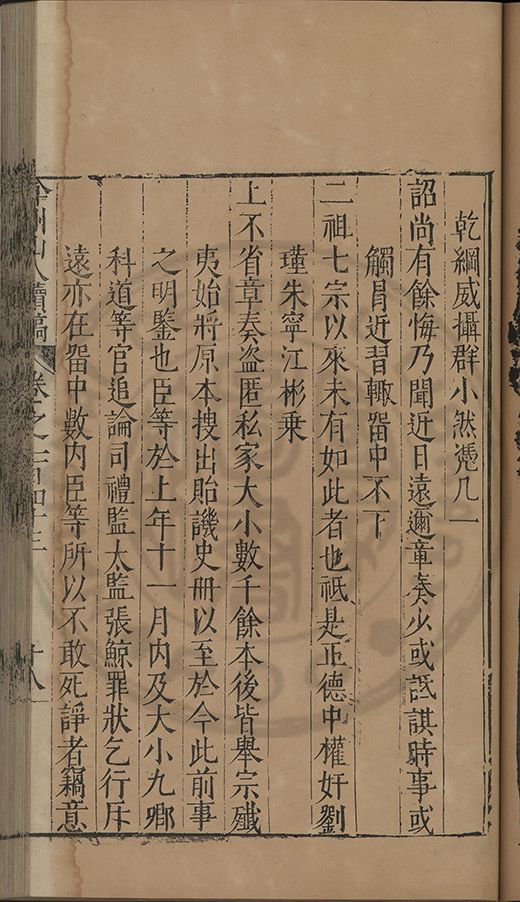 乾綱威攝群小然憑几一
詔尚有餘悔乃聞近日遠邇章奏少或詆諆時事或
觸冐近習輙畱中不下
二祖七宗以來未有如此者也祗是正德中權奸劉
瑾朱寧江彬乗
上不省章奏盗匿私家大小數千餘本後皆舉宗殱
夷始將原本搜出貽譏史冊以至於今此前事
之明鑒也臣等於上年十一月內及大小九卿
科道等官追論司禮監太監張鯨罪狀乞行斥
遠亦在畱中數內臣等所以不敢死諍者竊意
弇州山人續稿
卷之一百四十三
十八